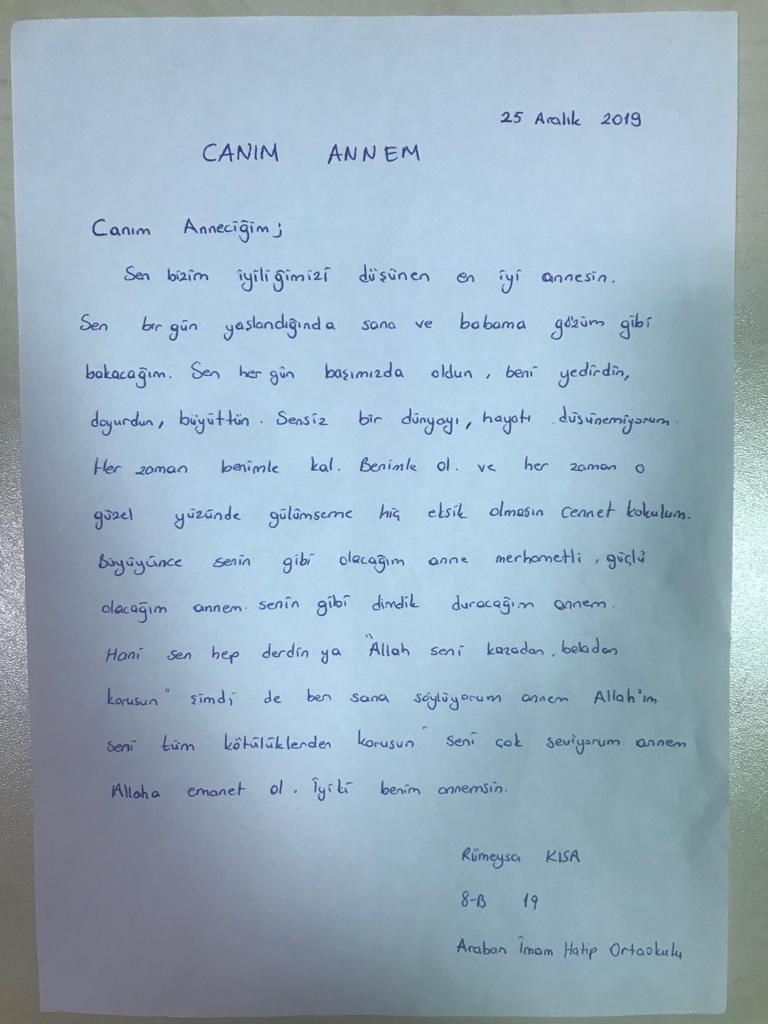 25 Aralık 2019
CANIM ANNEM
Canım Anneciğim;
Sen bizim iyiliğimizi düşünen en iyi annesin.
Sen bir gün yaşlandığında sana ve babama gözüm gibi
bakacağım. Sen her gün başımızda oldun, beni yedirdin,
doyurdun, büyüttün. Sensiz bir dünyayı, hayatı düşünemiyorum.
Her zaman benimle kal. Benimle ol. ve her zaman o
güzel yüzünde gülümseme hiç eksik olmasın cennet kokulum.
Büyüyünce senin gibi olacağım anne merhametli, güçlü
olacağım annem. senin gibi dimdik duracağım annem.
Hani sen hep derdin ya "Allah seni kazadan, beladan
korusun" şimdi de ben sana söylüyorum annem Allah'ım
seni tüm kötülüklerden korusun" seni çok seviyorum annem
Allaha emanet ol. İyiki benim annemsin.
Rümeysa KISA
8-B 19
Araban İmam Hatip Ortaokulu